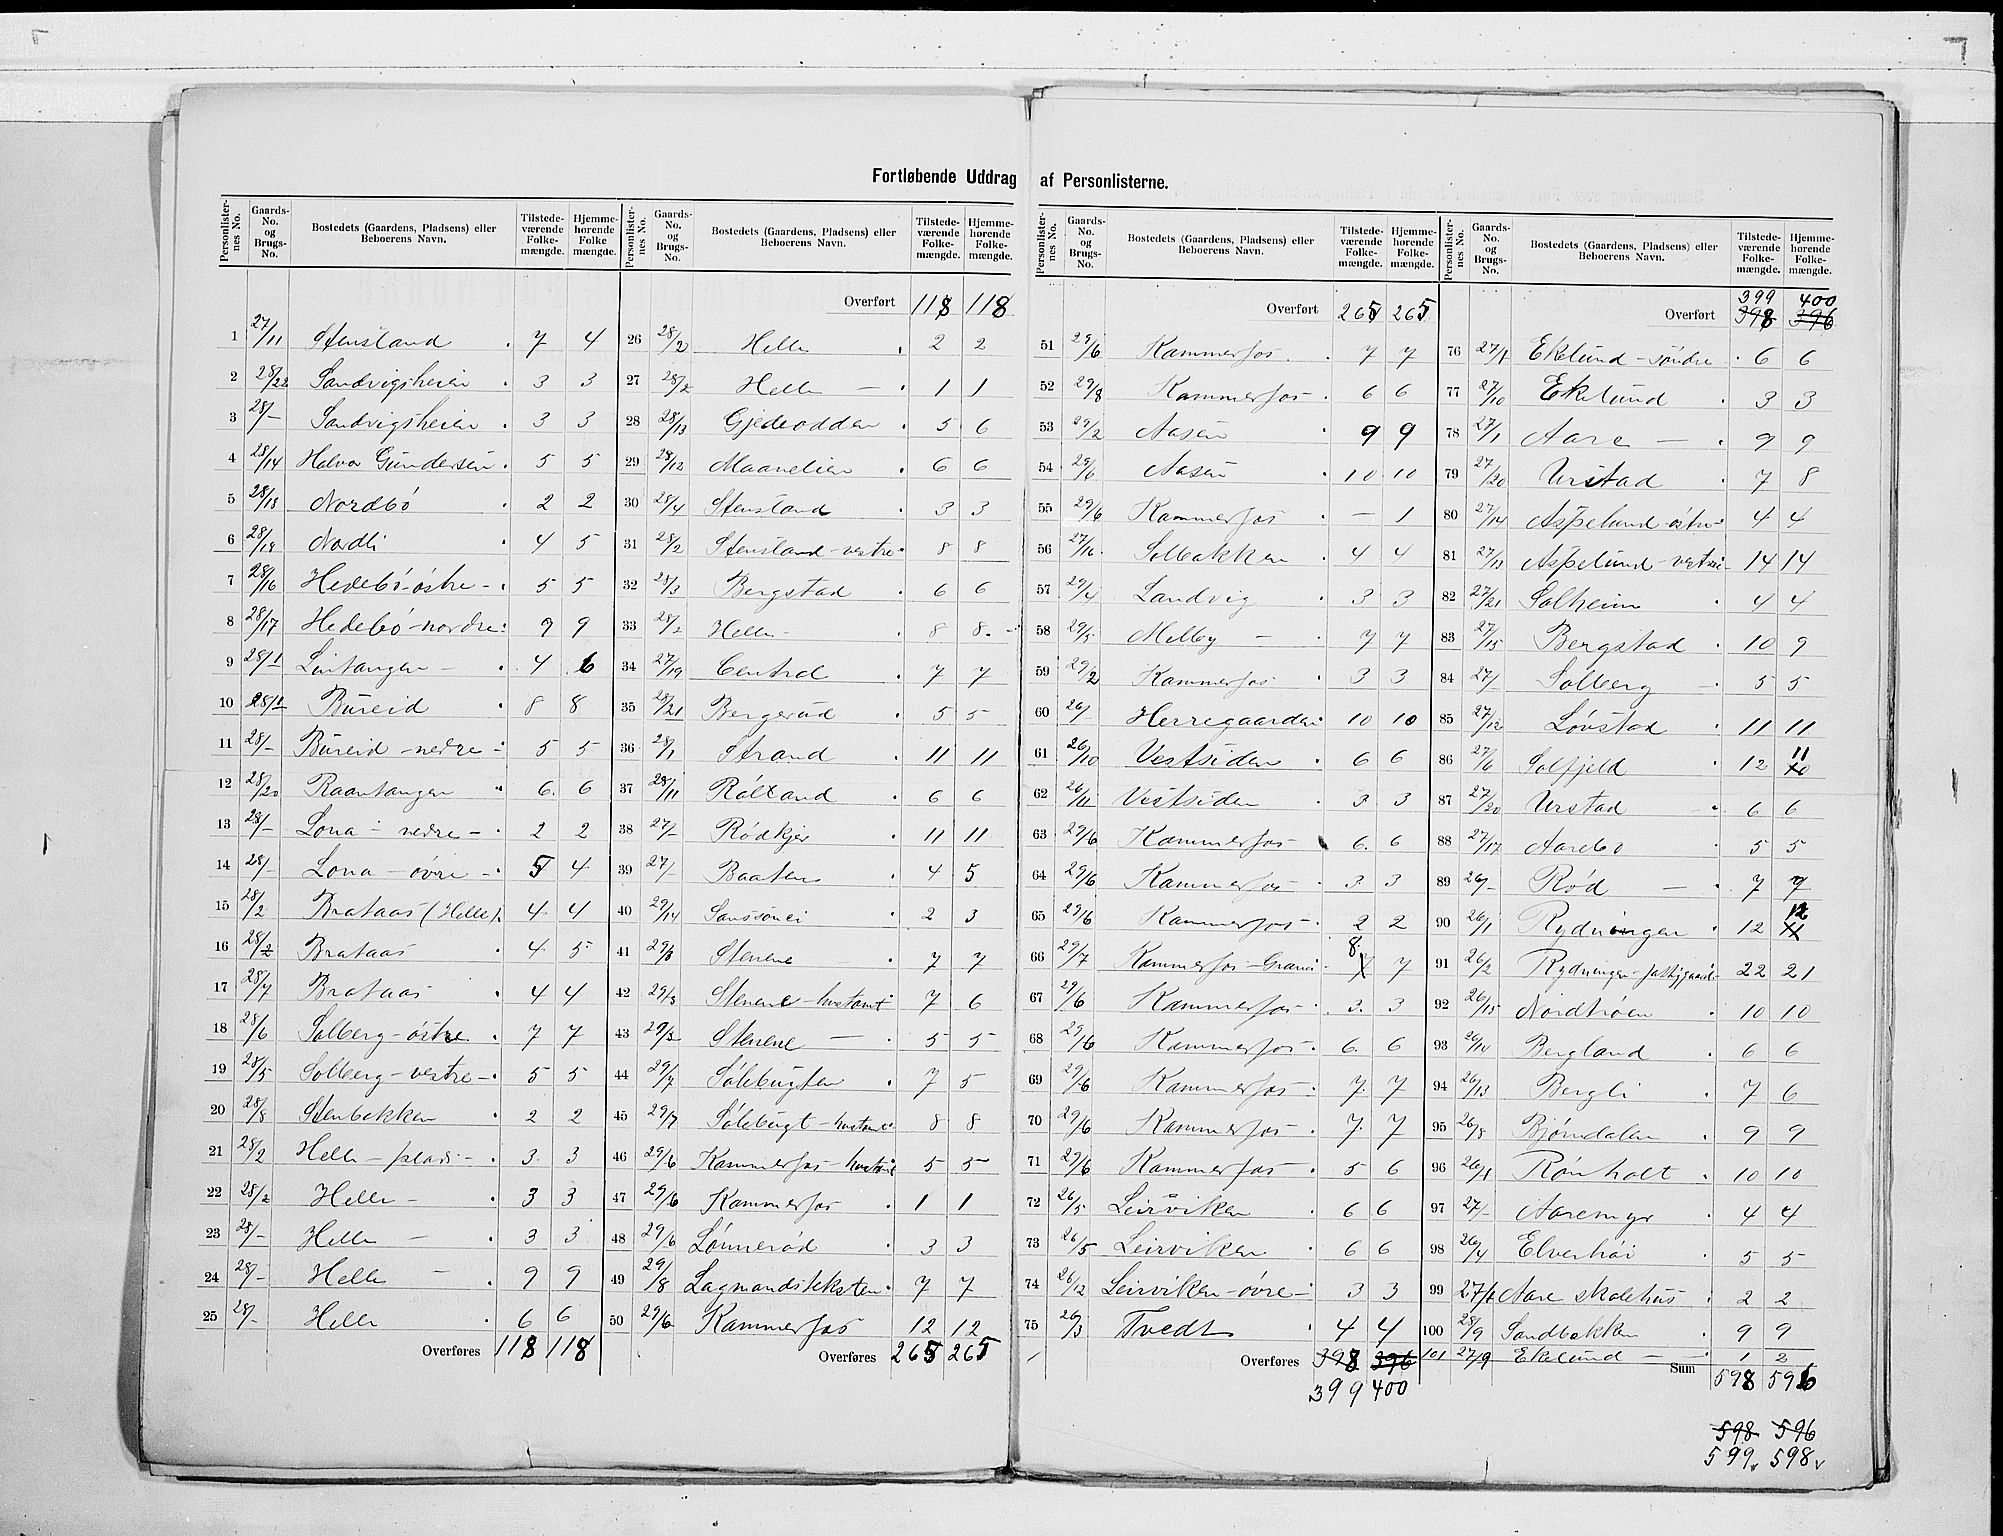 Fortløbende Uddrag af Personlisterne.
Personlisternes No. Gaards-No. og Brugs-No. Bostedets (Gaardens, Pladsens) eller Beboerens Navn. Tilstedeværende Folkemængde. Hjemmehørende Folkemængde.
1 27/11 Stensland 7 4
2 28/22 Sandvigsheien 3 3
3 28/- Sandvigsheien 3 3
4 28/14 Halvor Gundersen 5 5
5 28/18 Nordbö 2 2
6 28/19 Nordli 4 5
7 28/16 Hedebö-östre 5 5
8 28/17 Hedebö-nordre 9 9
9 28/1 Lintangen 4 6
10 28/1 Bureid 8 8
11 28/- Bureid-nedre 5 5
12 28/20 Raantangen 6 6
13 28/- Lona-nedre 2 2
14 28/- Lona-övre 5 4
15 28/2 Brataas (Helle) 4 4
16 28/2 Brataas 4 5
17 28/7 Brataas 4 4
18 28/6 Solberg-östre 7 7
19 28/5 Solberg-vestre 5 5
20 28/8 Stenbakken 2 2
21 28/2 Helle-plads 3 3
22 28/2 Helle 3 3
23 28/- Helle 3 3
24 28/- Helle 9 9
25 28/- Helle 6 6
Overføres 118 118
Overført 118 118
26 28/2 Helle 2 2
27 28/2 Helle 1 1
28 28/13 Gjedeodden 5 6
29 28/12 Maanelien 6 6
30 28/4 Stensland 3 3
31 28/2 Stensland-vestre 8 8
32 28/3 Bergstad 6 6
33 28/2 Helle 8 8
34 27/19 Central 7 7
35 28/21 Bergerud 5 5
36 28/1 Strand 11 11
37 28/11 Rolland 6 6
38 27/- Rödkjer 11 11
39 27/- Baaten 4 5
40 29/14 Sanssouci 2 3
41 29/3 Stenene 7 7
42 29/3 Stenene-hustomt 7 6
43 29/3 Stenene 5 5
44 29/7 Sölebugten 7 5
45 29/7 Sölebugt-hustomt 8 8
46 29/6 Kammerfos-hustomt 5 5
47 29/6 Kammerfos 1 1
48 29/6 Lönneröd 3 3
49 29/8 Lagmandsteksten 7 7
50 29/6 Kammerfos 12 12
Overføres 265 265
Overført 265 265
51 29/6 Kammerfos 7 7
52 29/8 Kammerfos 6 6
53 29/2 Aasen 9 9
54 29/6 Aasen 10 10
55 29/6 Kammerfos — 1
56 27/16 Solbakken 4 4
57 29/4 Landvig 3 3
58 29/5 Melby 7 7
59 29/2 Kammerfos 3 3
60 26/ Herregaarden 10 10
61 26/10 Vestsiden 6 6
62 26/11 Vestsiden 3 3
63 29/6 Kammerfos 6 6
64 29/6 Kammerfos 3 3
65 29/6 Kammerfos 2 2
66 29/7 Kammerfos- 8 7
67 29/6 Kammerfos 3 3
68 29/6 Kammerfos 6 6
69 29/6 Kammerfos 7 7
70 29/6 Kammerfos 7 7
71 29/6 Kammerfos 5 6
72 26/5 Leirviken 6 6
73 26/5 Leirviken 6 6
74 26/12 Leirviken-övre 3 3
75 26/3 Tvedt 4 4
Overføres 398 396
399 400
399 400
Overført 398 396
76 27/1 Ekelund-söndre 6 6
77 27/10 Ekelund 3 3
78 27/1 Aare 9 9
79 27/20 Urstad 7 8
80 27/14 Aspelund-östre 4 4
81 27/13 Aspelund-vestre 14 14
82 27/21 Solheim 4 4
83 27/15 Bergstad 10 9
84 27/- Solberg 5 5
85 27/12 Lövstad 11 11
86 27/6 Solfjeld 12 11
87 27/20 Urstad 6 6
88 27/17 Aarebo 5 5
89 26/- Rød 7 7
90 26/1 Rydningen 12 12
91 26/2 Rydningen-fattiggaard 22 21
92 26/15 Nordtröen 10 10
93 26/14 Bergland 6 6
94 26/13 Bergli 7 6
95 26/8 Bjørndalen 9 9
96 26/1 Rönholt 10 10
97 27/- Aaremyr 4 4
98 26/4 Elverhöi 5 5
99 27/1 Aare skolehus 2 2
100 28/9 Sandbakken 9 9
101 27/9 Ekelund 1 2
Sum 598 596
598 596
599 598